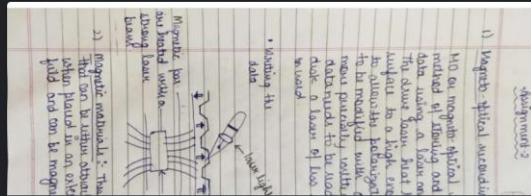 Assignment - 2
1) Magneto-optical recording
MO or magneto optical
method of storing and
data using a laser an
The drive laser heat
surface to a high
to allow the polarizat
to be modified with
more precisely
data needs to be
disk a laser of less
is used
• Writing the
data
laser light
Magnetic
are heated with a
strong laser
beam
2) Magnetic materials:- Thos
that can be either attrac
when placed in an exter
field and can be magne